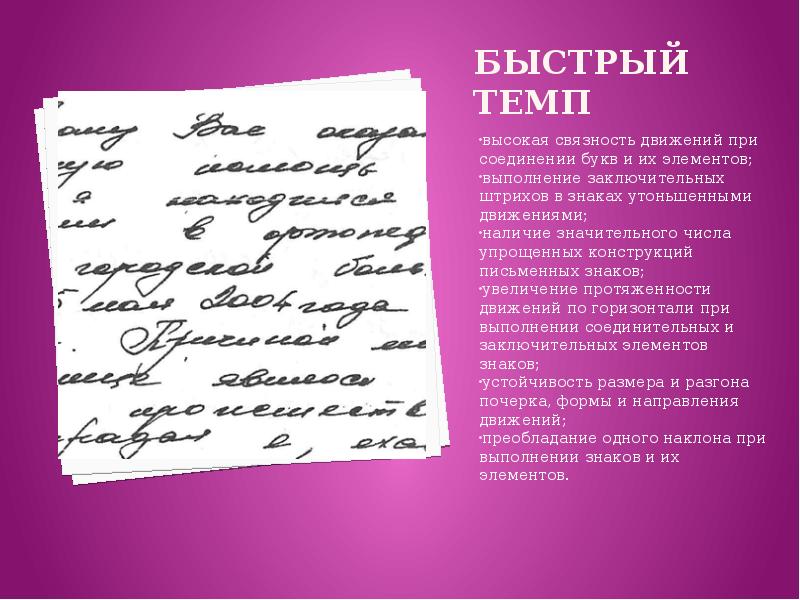 БЫСТРЫЙ
ТЕМП
ому Вас оказа
ную помощь
я находился
ии в ортопед
городской боль
5 мая 2004 года
. Причиной
явилось
происшеств
страдал я, ехал
·высокая связность движений при
соединении букв и их элементов;
·выполнение заключительных
штрихов в знаках утоньшенными
движениями;
·наличие значительного числа
упрощенных конструкций
письменных знаков;
·увеличение протяженности
движений по горизонтали при
выполнении соединительных и
заключительных элементов
знаков;
·устойчивость размера и разгона
почерка, формы и направления
движений;
·преобладание одного наклона при
выполнении знаков и их
элементов.